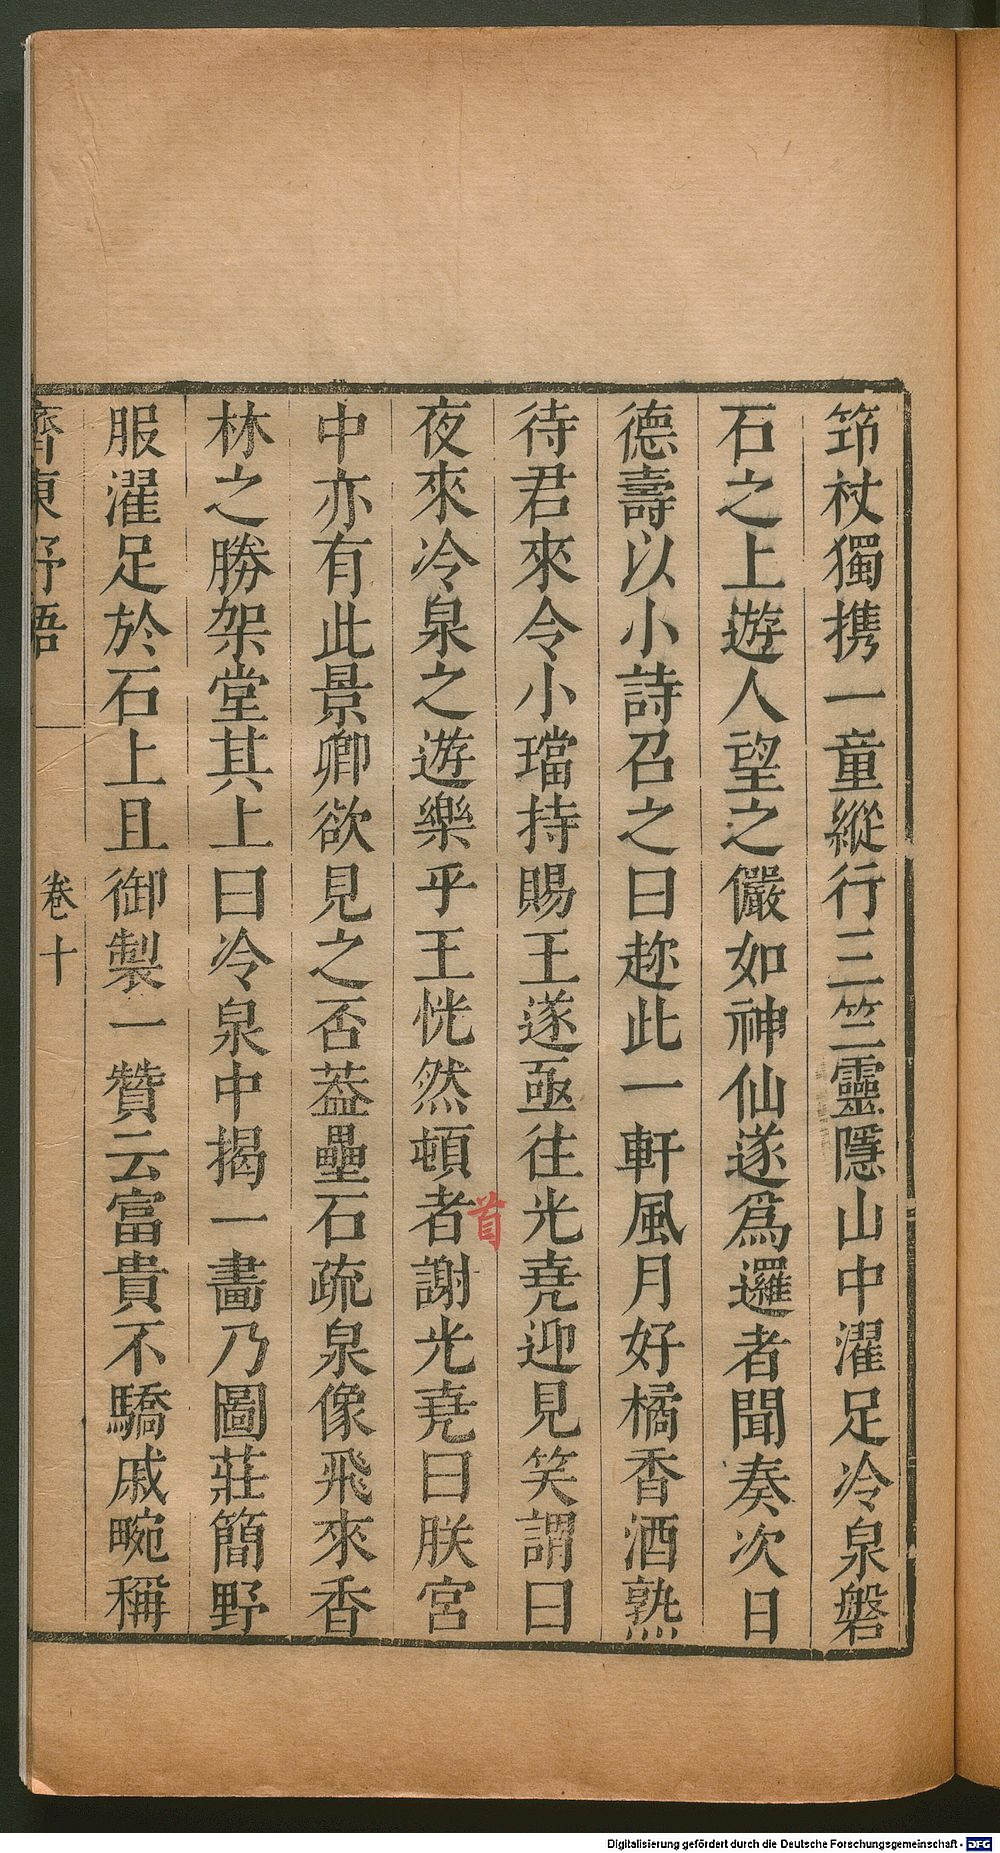 筇杖獨携一童縱行三竺靈隱山中濯足冷泉磐
石之上遊人望之儼如神仙遂爲邏者聞奏次日
德壽以小詩召之曰趂此一軒風月好橘香酒熟
待君來令小璫持賜王遂亟往光尭迎見笑謂曰
夜來冷泉之遊樂乎王恍然頓者謝光尭曰朕宮
首
中亦有此景卿欲見之否葢壘石疏泉像飛來香
林之勝架堂其上曰冷泉中揭一畵乃圖莊簡野
服濯足於石上且御製一贊云富貴不驕戚畹稱
齊東野語 卷十
Digitalisierung gefördert durch die Deutsche Forschungsgemeinschaft - DFG